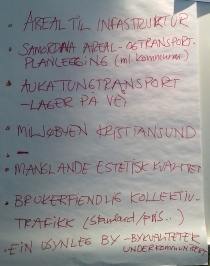 • AREAL TIL INFASTRUKTUR
• SAMORDNA AREAL- OG TRANSPORT-
PLANLEGGING (ml kommunar)
• AUKA TUNGTRANSPORT
-LAGER PÅ VEI
• MILJØBYEN KRISTIANSUND
• —
• MANGLANDE ESTETISK KVALITET
• BRUKERFIENDLIG KOLLEKTIV-
TRAFIKK (standard/pris..)
• EIN USYNLEG BY -BYKVALITETER
UNDERKOMMUNISERT